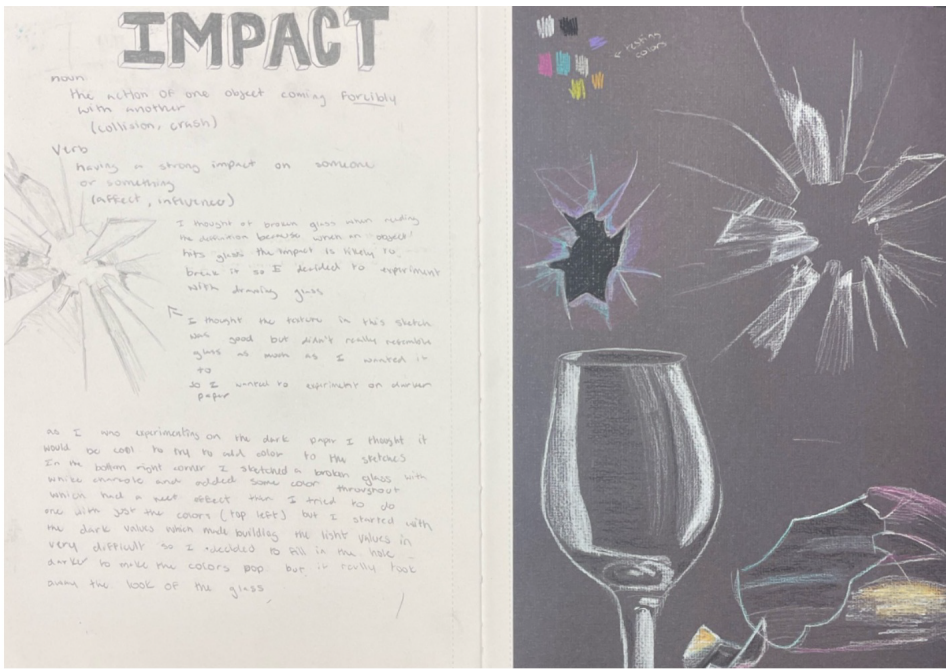 IMPACT
noun
the action of one object coming forcibly
with another
(collision, crash)
Verb
having a strong impact on someone
or something
(affect, influence)
I thought of broken glass when reading
the definition because when an object
hits glass the impact is likely to
break it so I decided to experiment
with drawing glass
I thought the texture in this sketch
was good but didn't really resemble
glass as much as I wanted it
to
so I wanted to experiment on darker
paper
as I was experimenting on the dark paper I thought it
would be cool to try to add color to the sketches
In the bottom right corner I sketched a broken glass with
white charcole and added some color throughout
which had a neat effect then I tried to do
one with just the colors (top left) but I started with
the dark values which made building the light values in
very difficult so I decided to fill in the hole
darker to make the colors pop but it really took
away the look of the glass
testing
colors